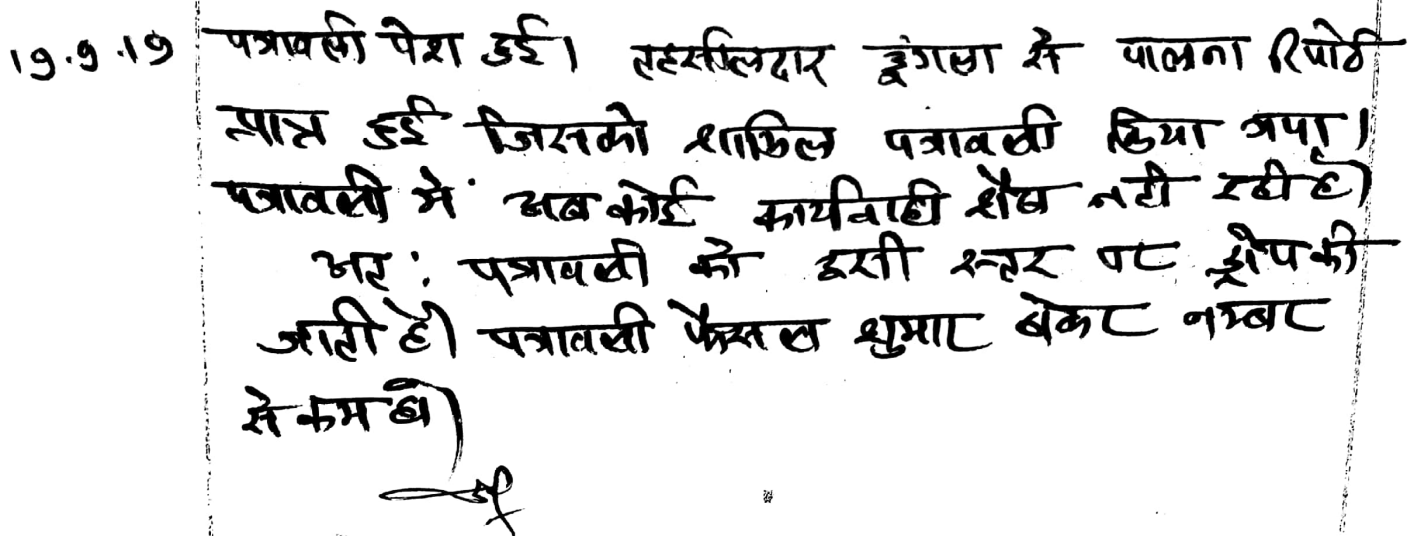 19.9.19 पत्रावली पेश हुई। तहसीलदार डूंगला से पालना रिपोर्ट
प्राप्त हुई जिसको शामिल पत्रावली किया गया।
पत्रावली में अब कोई कार्यवाही शेष नही रही है।
अत: पत्रावली को इसी स्तर पर ड्रोप की
जाती है। पत्रावली फैसल शुमार होकर नम्बर
से कम हो।